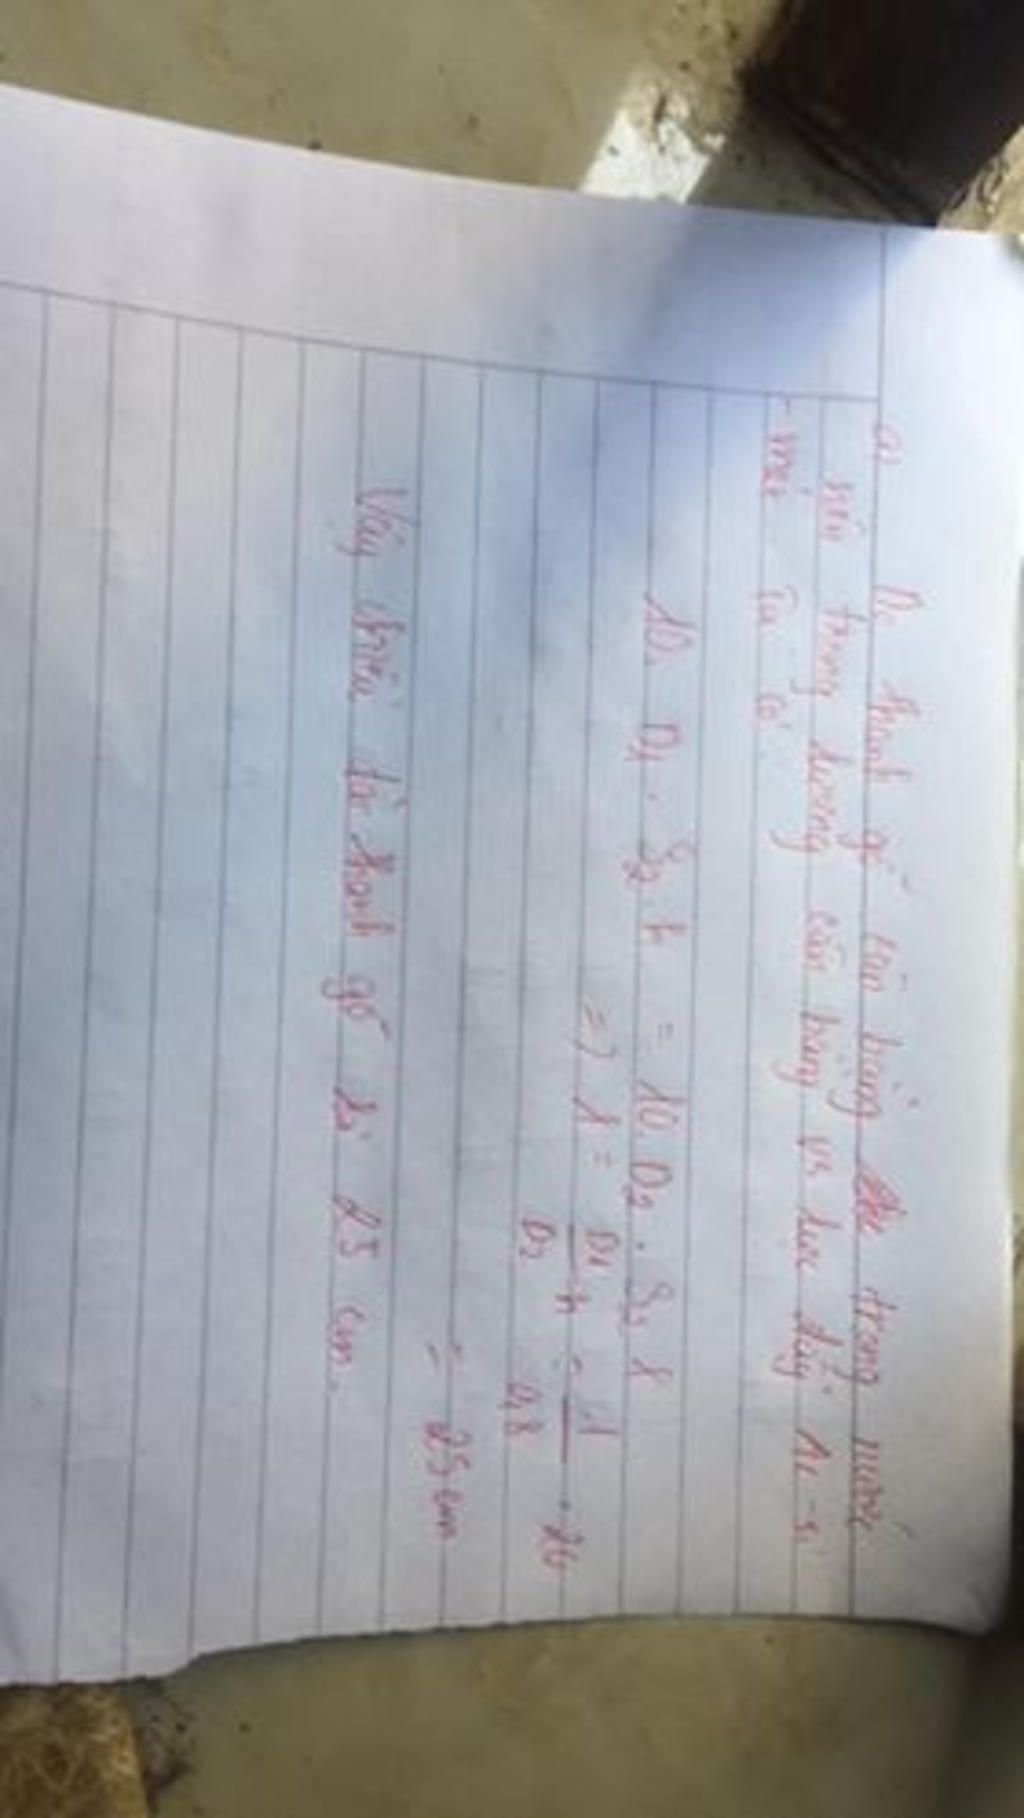 a) Do thanh gỗ cân bằng trong nước
nên trọng lượng cân bằng vs lực đẩy Ác-si
-mét Ta có
10. D1 . S2 . h = 10. D2 . S2 . l
=> l = D1/D2 . h = 1/0,8 . 20
= 25 cm
Vậy chiều dài thanh gỗ là 25 cm.